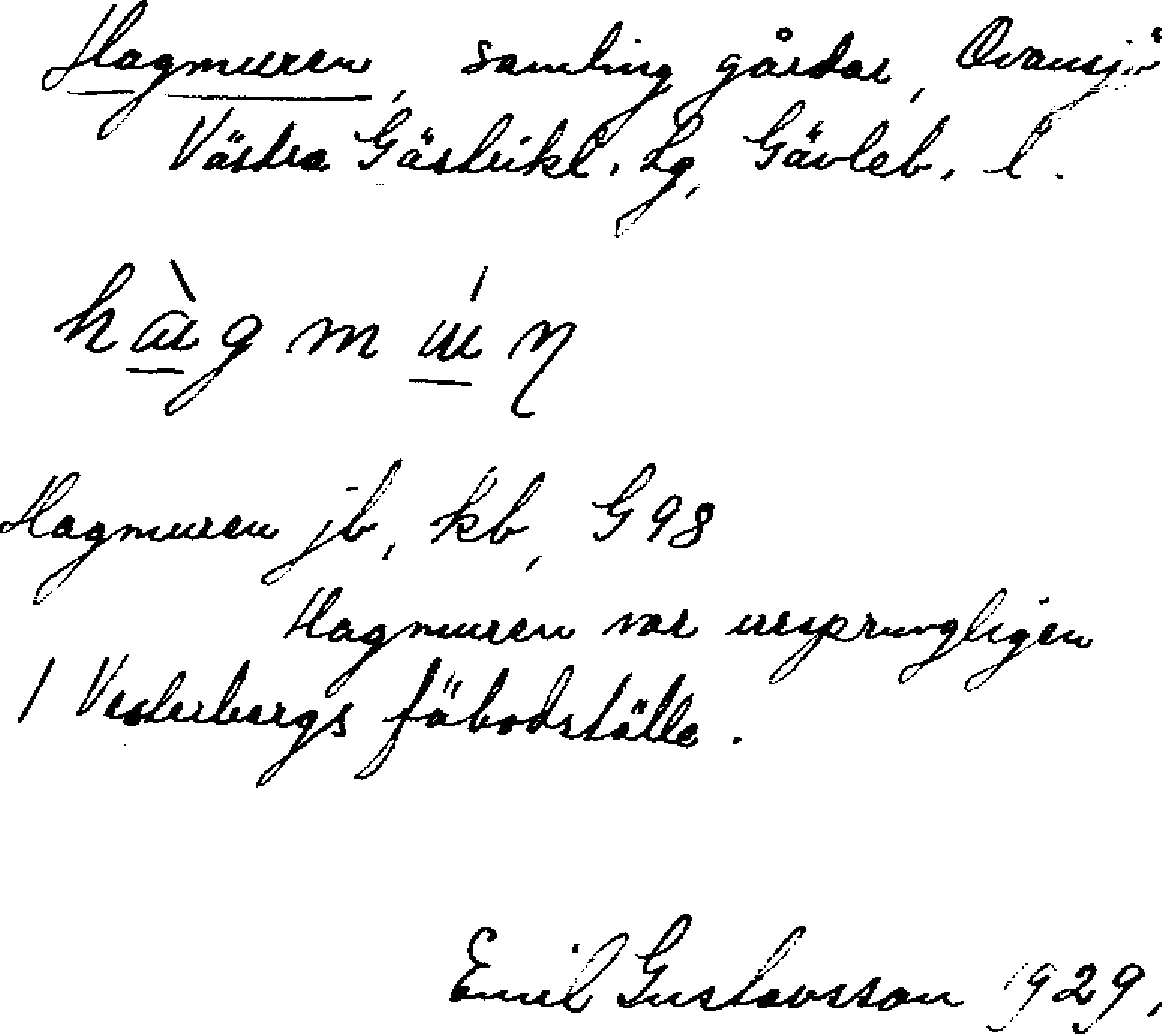 Hagmuren, samling gårdar, Ovansjö
Västra Gästrikl. Lg, Gävleb. l.
Hagmuren jb, kb, G 98
Hagmuren var ursprungligen
/ Vesterbergs fäbodställe.
Emil Gustavsson 1929.